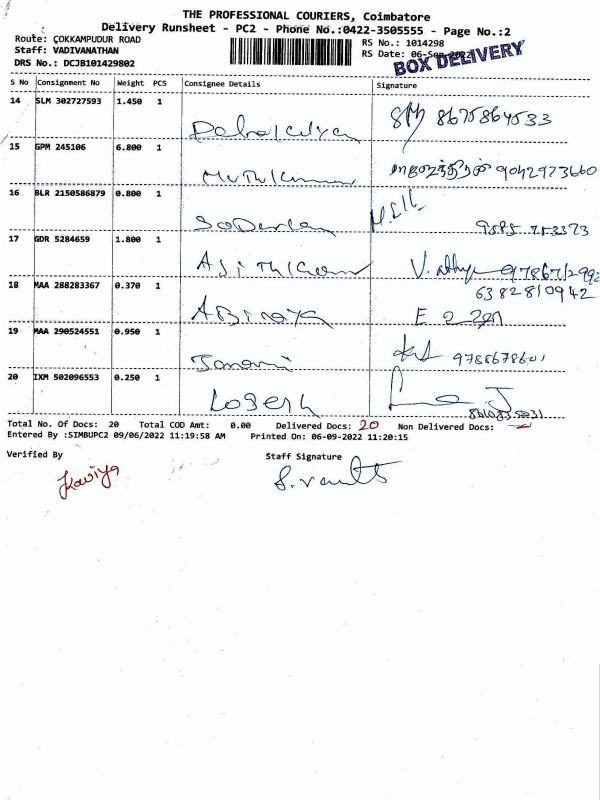 THE PROFESSIONAL COURIERS, Coimbatore
Delivery Runsheet - PC2 - Phone No.:0422-3505555 - Page No.:2
Route: COKKAMPUDUR ROAD
RS No.: 1014298
Staff: VADIVANATHAN
RS Date: 06-Sep-2022
DRS No.: DCJB101429802
BOX DELIVERY
S No Consignment No Weight PCS Consignee Details Signature
14 SLM 302727593 1.450 1
8675864533
15 GPM 245106 6.800 1
9042973660
16 BLR 2150586879 0.800 1
17 GDR 5284659 1.800 1
18 MAA 288283367 0.370 1
6382810942
Abinaya
19 MAA 290524551 0.950 1
Janani
20 IXM 502096553 0.250 1
Logesh
Total No. Of Docs: 20 Total COD Amt: 0.00 Delivered Docs: 20 Non Delivered Docs:
Entered By :SIMBUPC2 09/06/2022 11:19:58 AM Printed On: 06-09-2022 11:20:15
Verified By Staff Signature
Kaviya